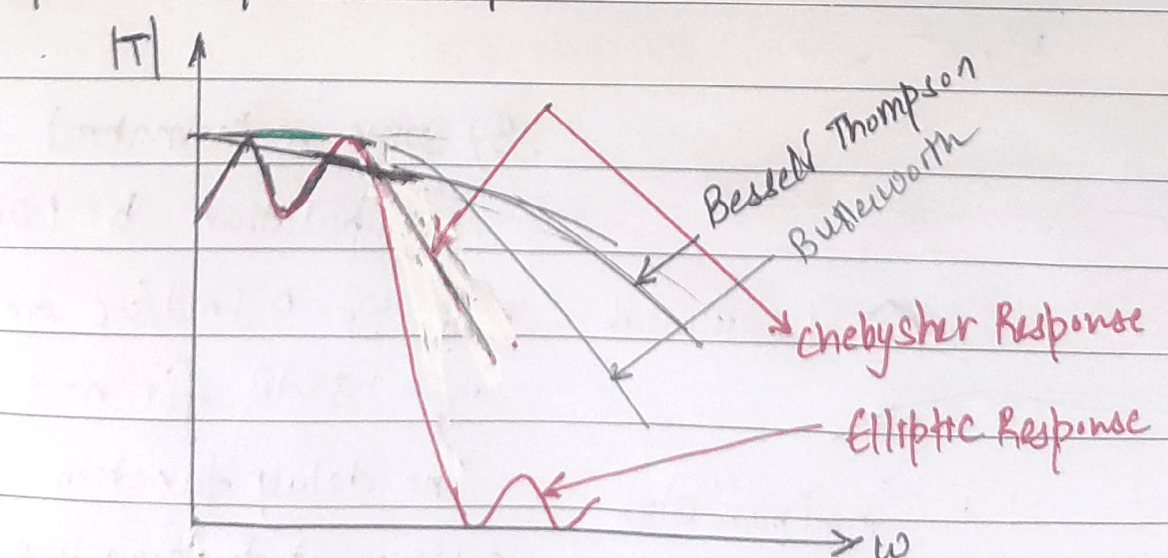 |T|
Bessel Thompson
Butterworth
Chebyshev Response
Elliptic Response
ω